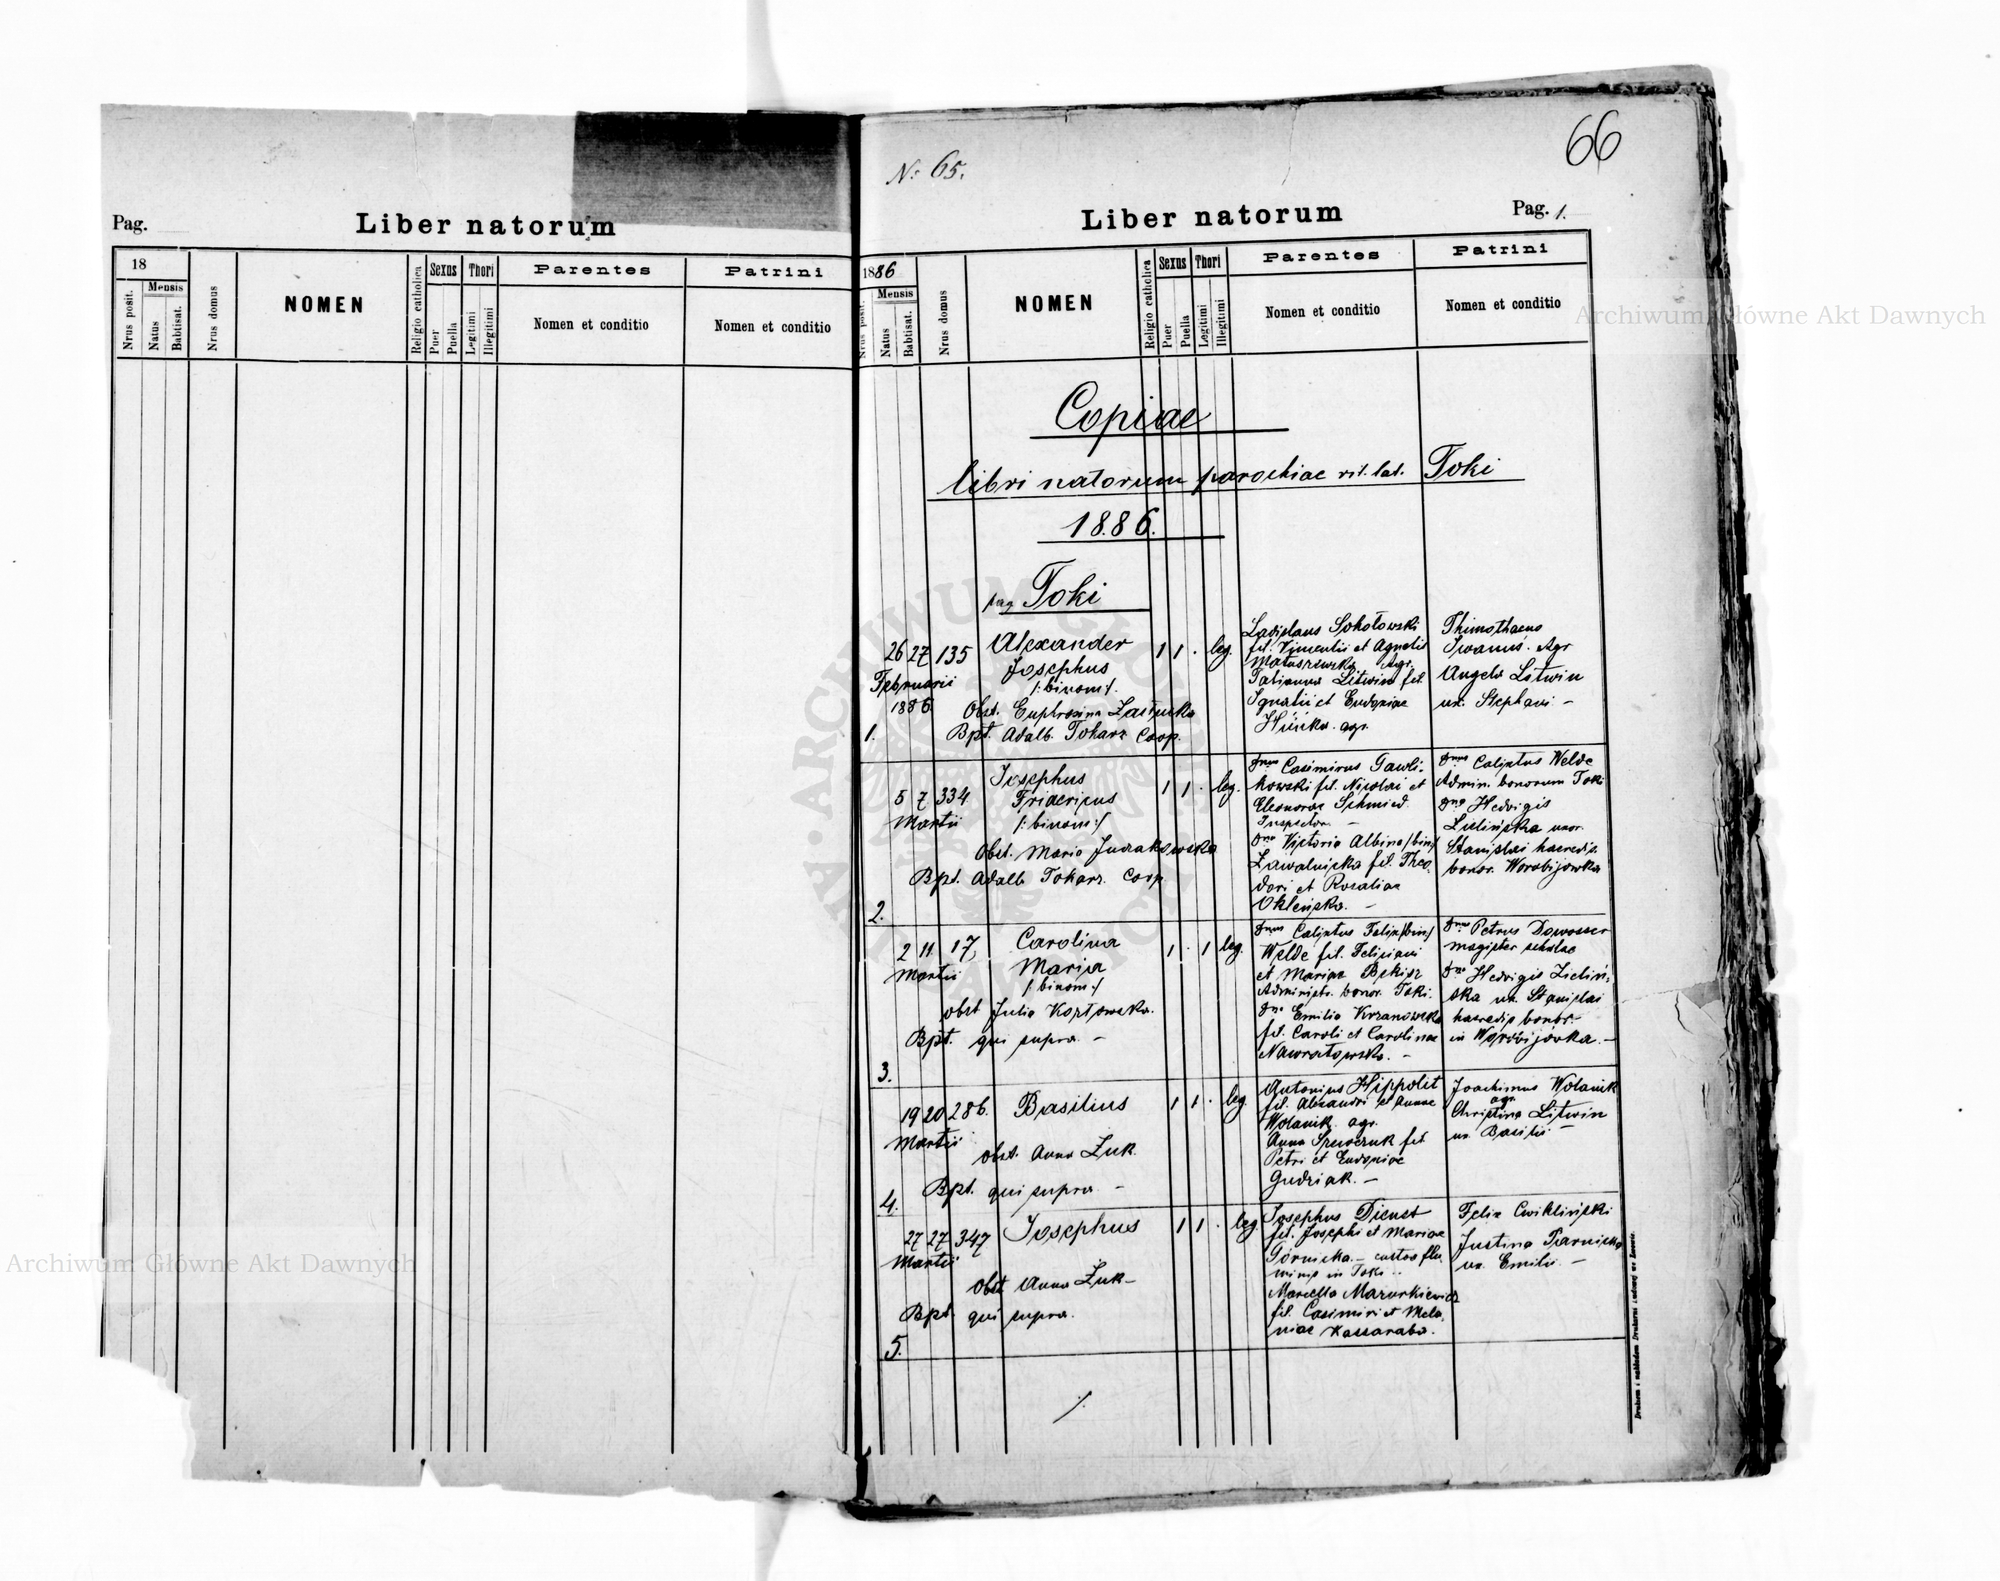 66
N: 65.
Pag.
Liber natorum
18
Mensis
Nrus posit.
Natus
Babtisat.
Nrus domus
NOMEN
Religio catholica
Sexus
Puer
Puella
Thori
Legitimi
Illegitimi
Parentes
Nomen et conditio
Patrini
Nomen et conditio
Liber natorum
Pag. 1.
1886
Mensis
Nrus posit.
Natus
Babtisat.
Nrus domus
NOMEN
Religio catholica
Sexus
Puer
Puella
Thori
Legitimi
Illegitimi
Parentes
Nomen et conditio
Patrini
Nomen et conditio
Copiae
libri natorum parochiae rit. lat. Toki
1886.
pag Toki
1.
26 27 135
Februarii
1886
Alexander
Josephus
/:binom:/.
Obst. Euphrosina
Bpt. Adalb. Tokarz Coop.
1 1 . leg.
Ladislaus Sokołowski
fil. Vincentii et Agnetis
Matuszewska Agr.
Tatianna Litwin fil.
Ignatii et Eudoxiae
agr.
Thimothaeus
Iwanus. Agr
Angela Litwin
ux. Stephani -
2.
5 7 334
Martii
Josephus
Fridericus
/:binom:/
Obst. Maria
Bpt. Adalb Tokarz. Coop
1 1 . leg.
Dnus Casimirus Gawli-
kowski fil. Nicolai et
Eleonorae Schmied.
Inspector -
Dna Victoria Albina /bin/
Zawalnicka fil. Theo
dori et Rosaliae
Okleńska. -
Dnus Calixtus Welde
Admin. bonorum Toki
Dna Hedvigis
Zielińska uxor.
Stanislai haeredis
bonor. Worobijowka
3.
2 11 17
Martii
Carolina
Maria
/:binom:/
obst Julia Kozłowska.
Bpt. qui supra. -
1 . 1 leg.
Dnus Calixtus Felix /bin/
Welde fil. Feliciani
et Mariae Bekisz
Administr. bonor. Toki.
Dna Emilia Krzanowska
fil. Caroli et Carolinae
Nawratowska. -
Dnus Petrus Dowosser
magister scholae
Dna Hedvigis Zieliń-
ska ux. Stanislai
haeredis bonor.-
in Worobijówka. -
4.
19 20 286.
Martii
Basilius
obst. Anna Żuk.
Bpt. qui supra -
1 1 . leg
Antonius Hippolit
fil. Alexandri et Annae
Wolanik agr.
Anna Szewczuk fil
Petri et Eudoxiae
Gudziak. -
Joachimus Wolanik
agr.
Christina Litwin
ux. Basilii -
5.
27 27 347
Martii
Josephus
Obst Anna Żuk -
Bpt. qui supra.
1 1 . leg.
Josephus Dienst
fil. Josephi et Mariae
Górnicka. - custos flu
vinis in Toki -
Marcella Mazurkiewicz
fil. Casimiri et Mela-
niae Kossaraba.
Felix Cwikliński
Justina Parnicka
ux. Emilii. -
./.
Drukiem i nakładem Drukarni Ludowej we Lwowie.
Archiwum Główne Akt Dawnych
Archiwum Główne Akt Dawnych